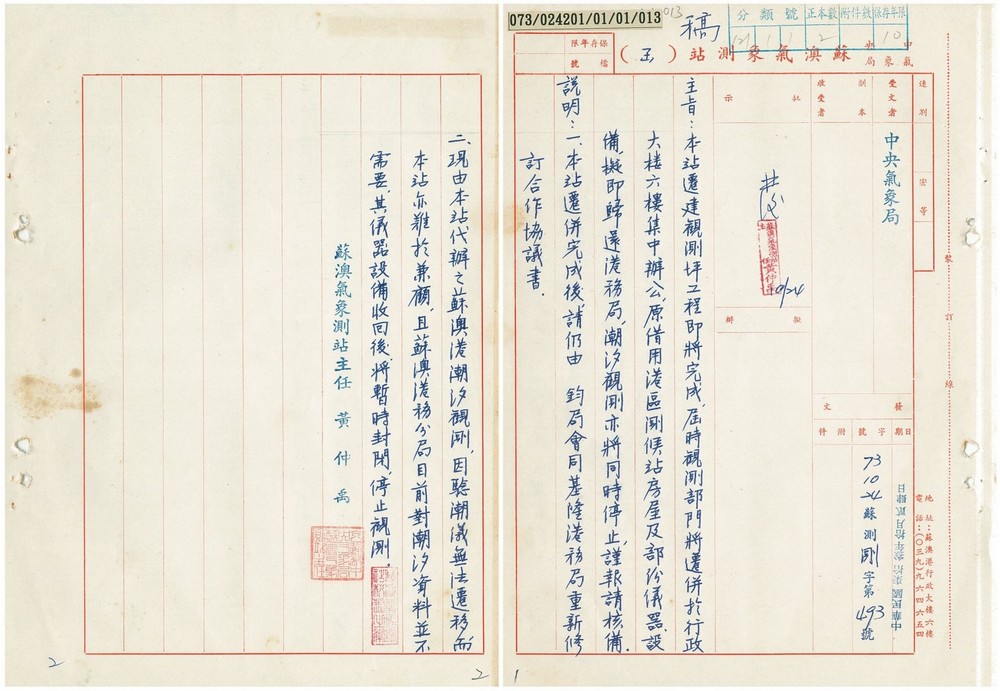 073/024201/01/01/013
稿
分類號
正本數
附件數
保存年限
121 1 1
2
10
保存年限
檔號
中央氣象局
蘇澳氣象測站(函)
速別
密等
受文者
中央氣象局
副本收受者
批示
10/24
擬辦
發文
日期
字號
附件
中華民國柒拾參年拾月貳肆日
73 10 24 蘇測剛字第493號
地址:蘇澳港行政大樓六樓
電話:(〇三九)九六四六五四
裝訂線
主旨:本站遷建觀測坪工程即將完成,屆時觀測部門將遷併於行政
大樓六樓集中辦公,原借用港區測候站房屋及部份儀器設
備,擬即歸還港務局,潮汐觀測亦將同時停止,謹報請核備。
說明:一、本站遷併完成後,請仍由 鈞局會同基隆港務局重新修
訂合作協議書。
二、現由本站代辦之蘇澳港潮汐觀測,因驗潮儀無法遷移而
本站亦難於兼顧,且蘇澳港務分局目前對潮汐資料並不
需要,其儀器設備收回後,將暫時封閉,停止觀測。
蘇澳氣象測站主任 黃仲禹
1
2
2